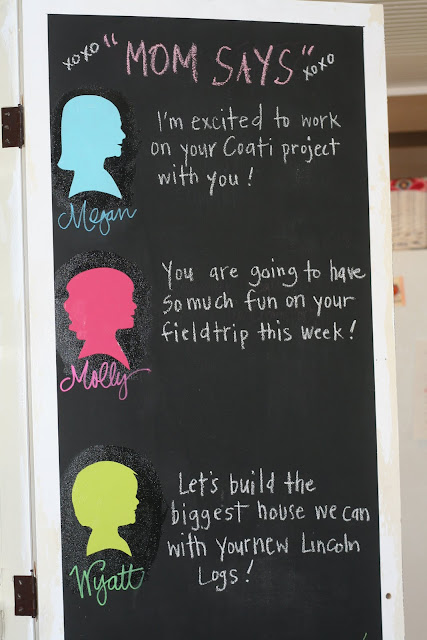 xoxo "MOM SAYS" xoxo
I'm excited to work
on your Coati project
with you!
Megan
You are going to have
so much fun on your
fieldtrip this week!
Molly
Let's build the
biggest house we can
with your new Lincoln
Logs!
Wyatt